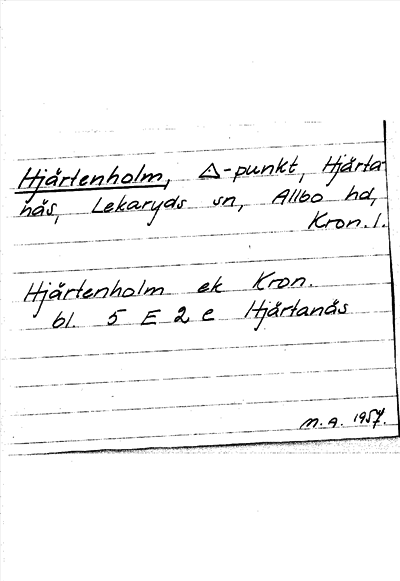 Hjärtenholm, △-punkt, Hjärta-
näs, Lekaryds sn, Allbo hd,
Kron. l.
Hjärtenholm ek Kron.
bl. 5 E 2 e Hjärtanäs
M.A. 1957.